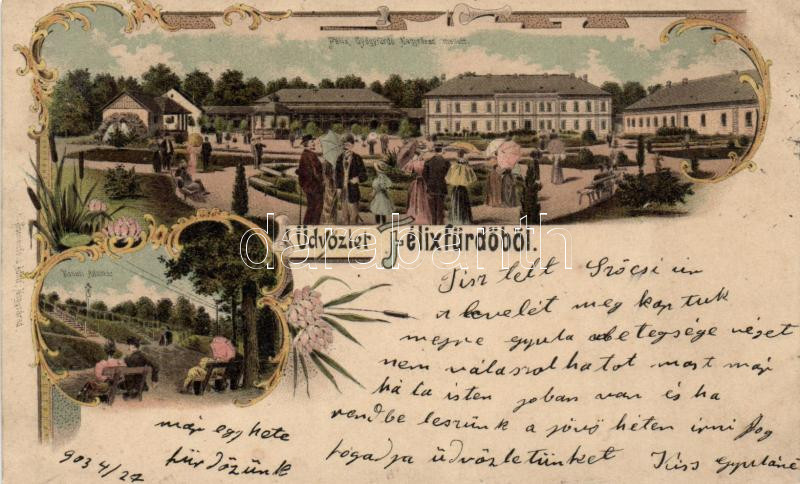 Félix Gyógyfürdő Nagyvárad mellett.
Üdvözlet Félixfürdőből.
darabanth
Vasúti Állomás
Tisz lett Szőcsi úr
a levelét meg kaptuk
mejre gyula abetegsége véget
nem válaszolhatot most már
hála isten joban van és ha
rendbe leszünk a jövő héten irni fog
fogadja üdvözletünket Kiss Gyuláné
már egy hete
fürdőzünk
903 4/27